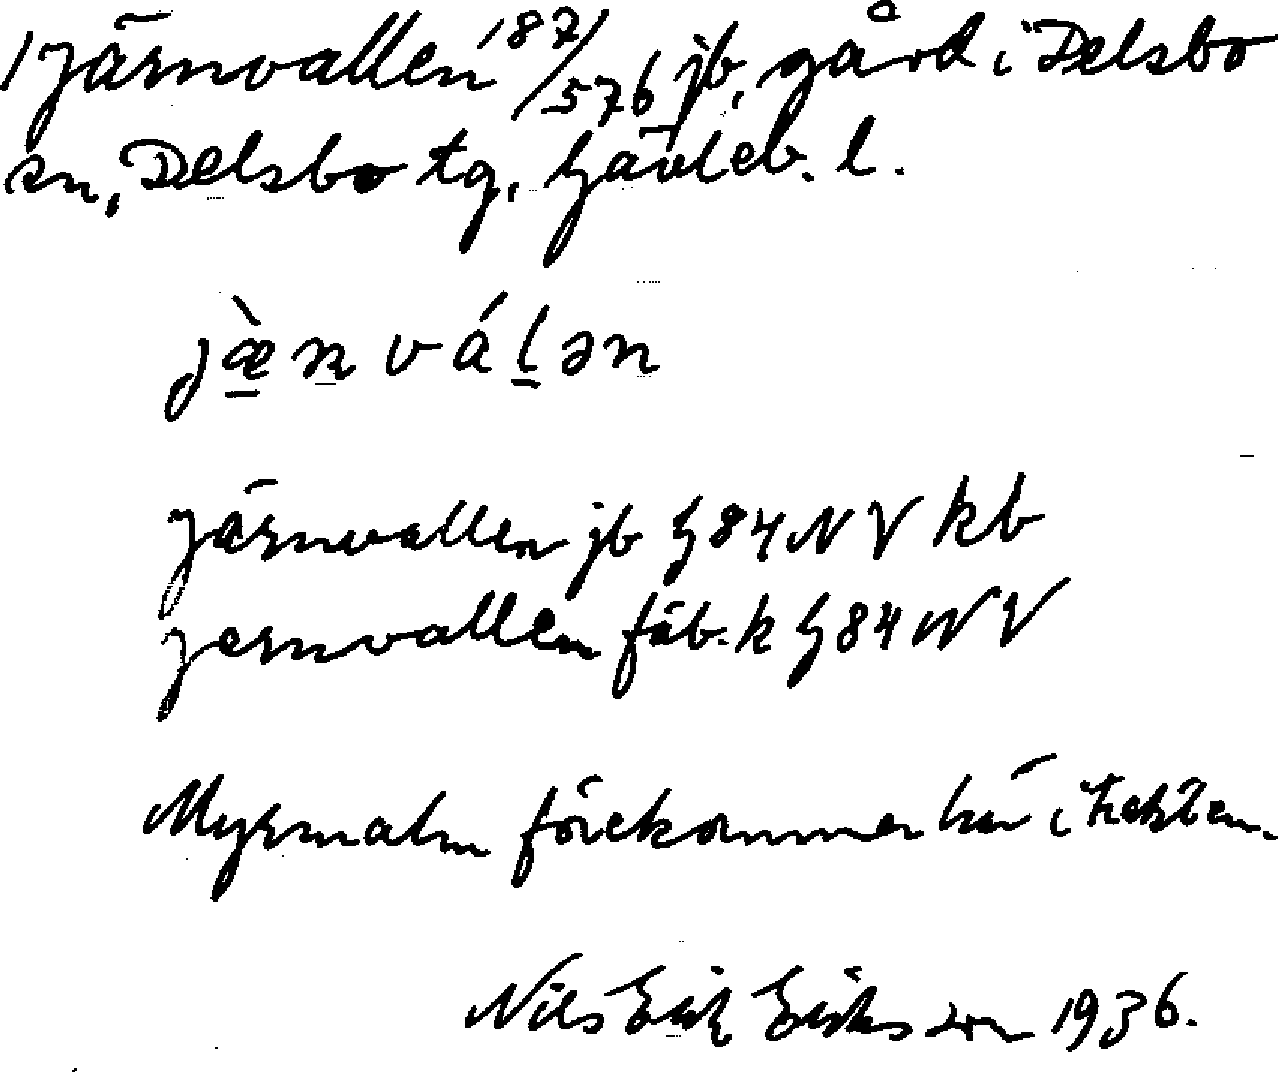 1 Järnvallen 187/576 jb, gård i Delsbo
sn, Delsbo tg, Gävleb. l.
jæ̀n váḷən
Järnvallen jb G84NV kb
Jernvallen fäb. k G84NV
Myrmalm förekommer här i trakten.
Nils Erik Eriksson 1936.